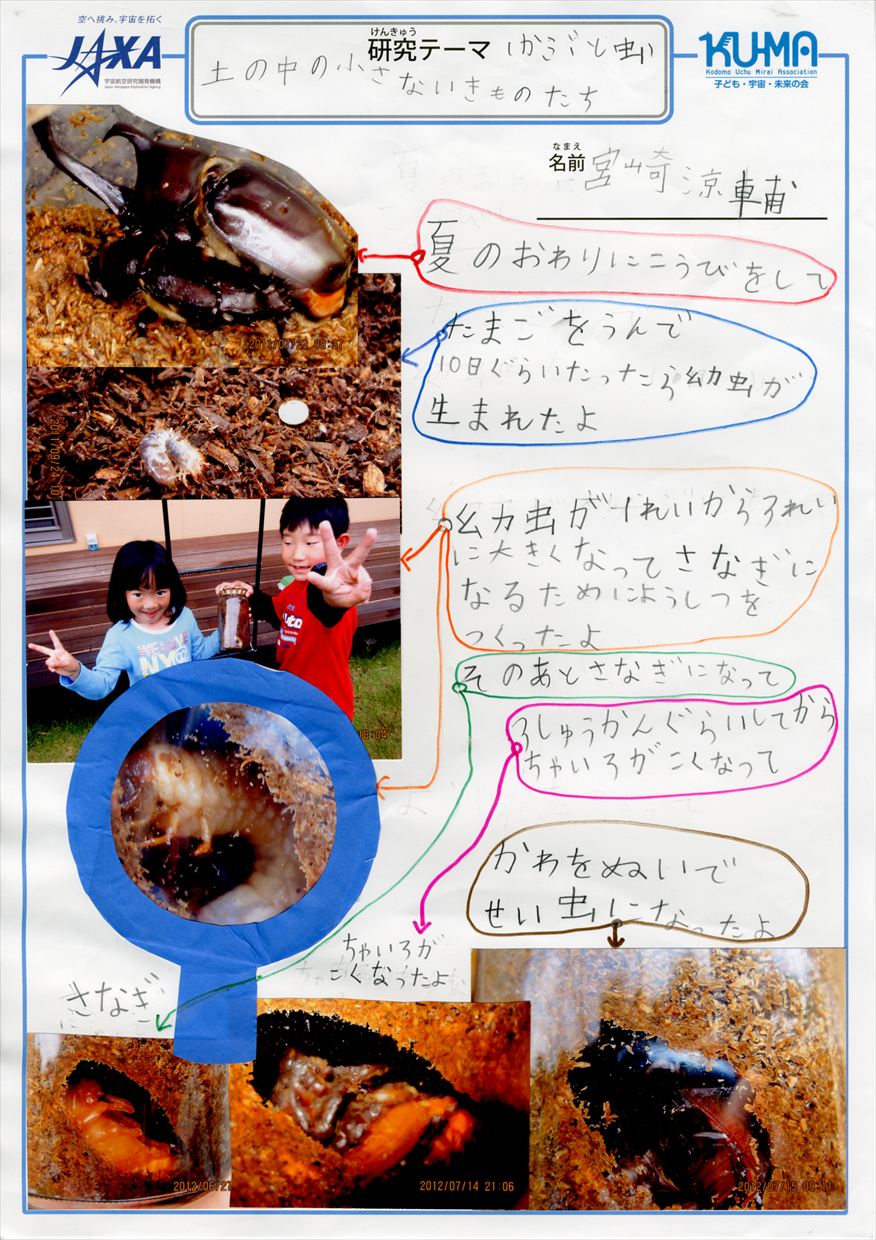 空へ挑み、宇宙を拓く
JAXA
宇宙航空研究開発機構
Japan Aerospace Exploration Agency
けんきゅう
研究テーマ
土の中の小さないきものたち
KU-MA
Kodomo Uchu Mirai Association
子ども・宇宙・未来の会
なまえ
名前 宮崎涼輔
夏のおわりにこうびをして
たまごをうんで
10日ぐらいたったら幼虫が
生まれたよ
幼虫が1れいから3れい
に大きくなってさなぎに
なるためにようしつを
つくったよ
そのあとさなぎになって
3しゅうかんぐらいしてから
ちゃいろがこくなって
かわをぬいで
せい虫になったよ
ちゃいろが
こくなったよ
さなぎ
2011/07/23 09:37
2011/09/24
18:04
2012/06/27
2012/07/14 21:06
2012/07/15 09:11